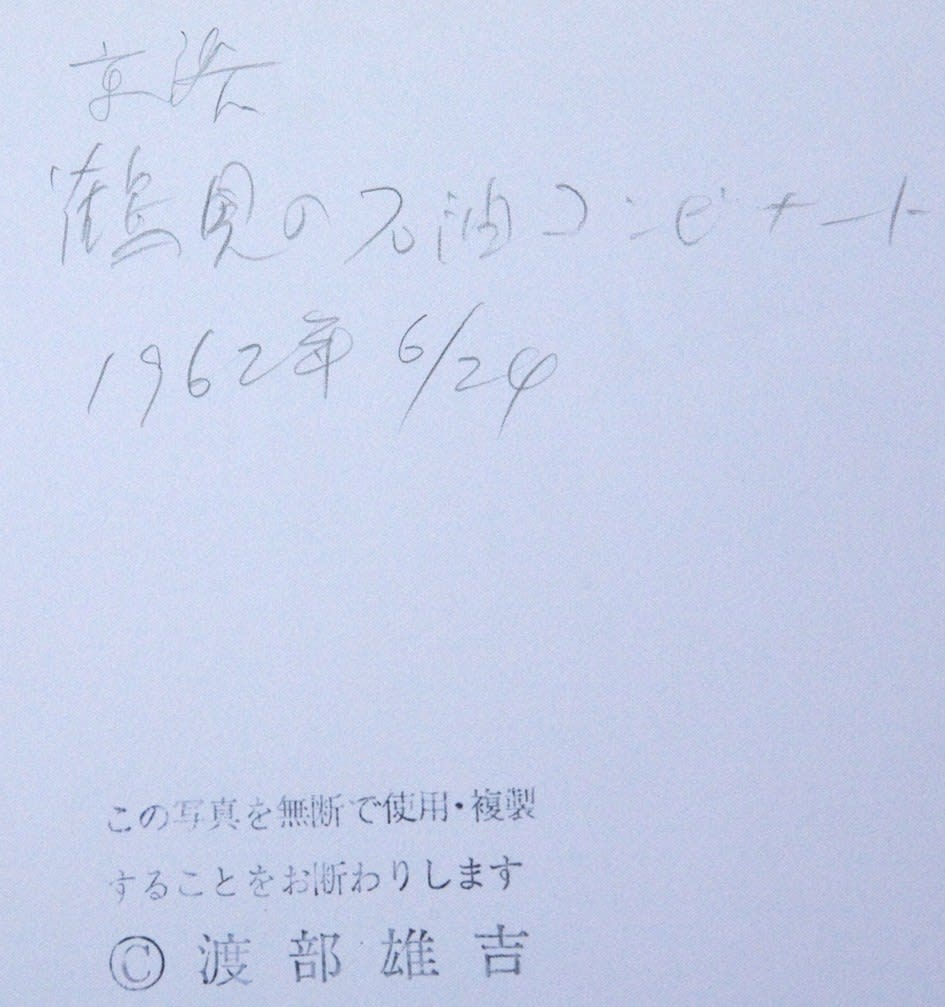 京浜
鶴見の石油コンビナート
1962年 6/24
この写真を無断で使用・複製
することをお断わりします
© 渡部雄吉